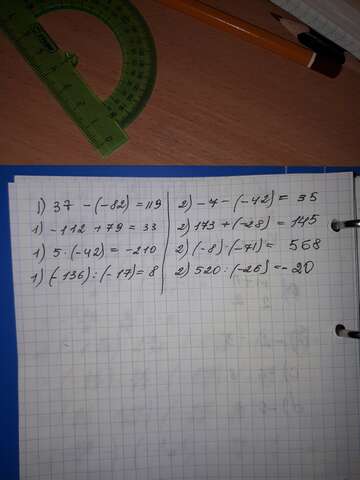 1) 37 - (-82) = 119
1) -112 + 79 = 33
1) 5 · (-42) = -210
1) (-136) : (-17) = 8
2) -7 - (-42) = 35
2) 173 + (-28) = 145
2) (-8) · (-71) = 568
2) 520 : (-26) = -20